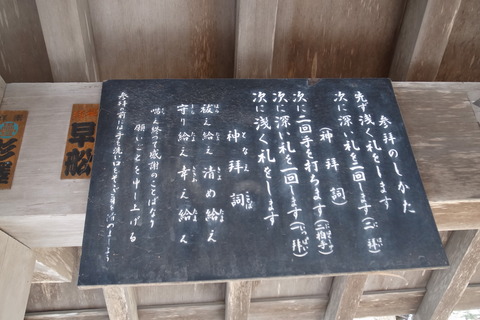 参拝のしかた
先ず浅く礼をします
次に深い礼を二回します(二拝)
(神拝詞)
次に二回手を打ちます(二拍手)
次に深い礼を一回します(一拝)
次に浅く礼をします
神拝詞
となえ ことば
祓え給え 清め給え
守り給え 幸え給え
唱え終って感謝のことばなり
願いごとを申し上げる
参拝の前には手を洗い口をそそぎ身を清めましょう
早松